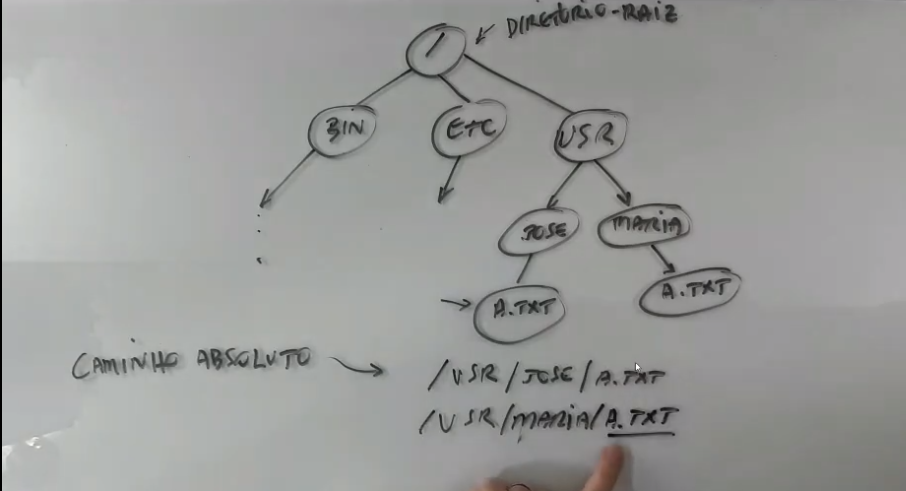 DIRETÓRIO-RAIZ
/
BIN
ETC
USR
JOSE
MARIA
A.TXT
A.TXT
CAMINHO ABSOLUTO
/USR/JOSE/A.TXT
/USR/MARIA/A.TXT